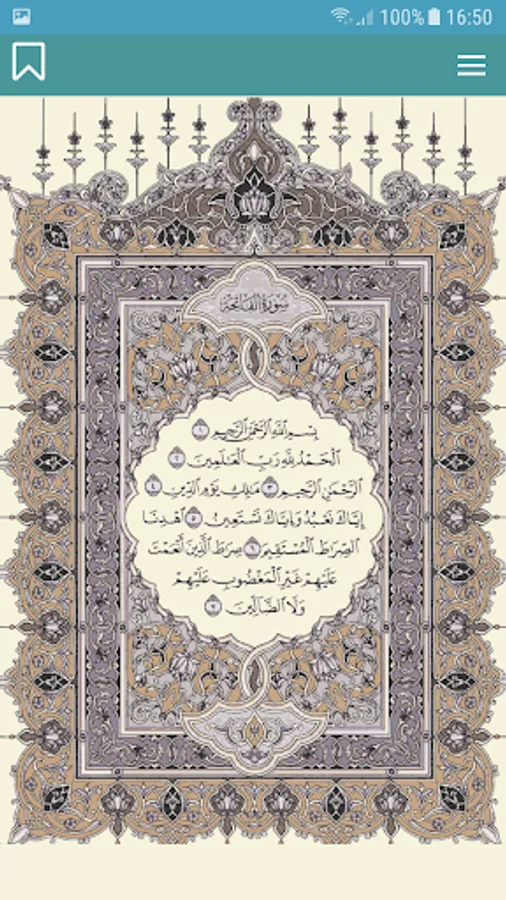 100% 16:50
سورة الفاتحة
بِسْمِ ٱللَّهِ ٱلرَّحْمَٰنِ ٱلرَّحِيمِ ١
ٱلْحَمْدُ لِلَّهِ رَبِّ ٱلْعَٰلَمِينَ ٢
ٱلرَّحْمَٰنِ ٱلرَّحِيمِ ٣ مَٰلِكِ يَوْمِ ٱلدِّينِ ٤
إِيَّاكَ نَعْبُدُ وَإِيَّاكَ نَسْتَعِينُ ٥ ٱهْدِنَا
ٱلصِّرَٰطَ ٱلْمُسْتَقِيمَ ٦ صِرَٰطَ ٱلَّذِينَ أَنْعَمْتَ
عَلَيْهِمْ غَيْرِ ٱلْمَغْضُوبِ عَلَيْهِمْ
وَلَا ٱلضَّآلِّينَ ٧